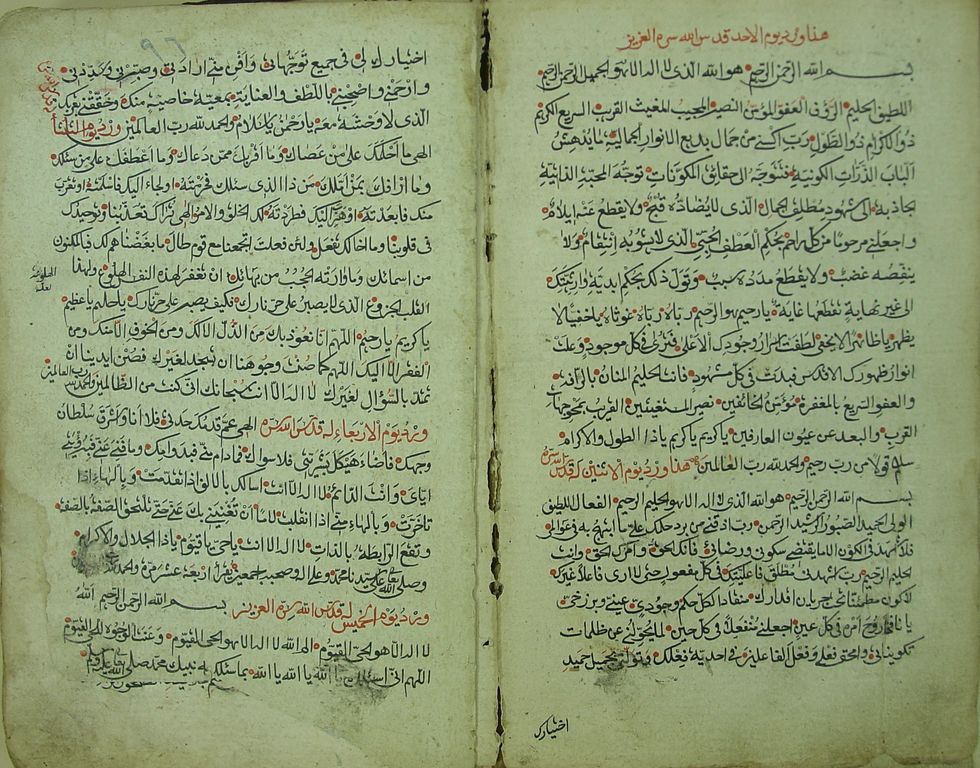 هذا ورد يوم الاحد قدس الله سره العزيز
بسم الله الرحمن الرحيم هو الله الذي لا اله الا هو الجميل الرحمن الرحيم
اللطيف الحليم الرؤف العفو المؤمن النصير المجيب المغيث القريب السريع الكريم
ذو الاكرام ذو الطول رب اكسني من جمال بديع الانوار الجمالية ما يدهش
الباب الذرات الكونية فتتوجه الى حقائق المكونات توجه المحبة الذاتية
بجاذبة الى شهود مطلق الجمال الذي لا يضاده قبح ولا يقطع عنه ايلام
واجعلني مرحوما من كل راحم بحكم العطف الحبي الذي لا يشوبه انتقام ولا
ينقصه غضب ولا يقطع مدده سبب وتول ذلك بحكم ابدية وارثيتك
الى غير نهاية تقطعها غاية يا رحيم هو الرحيم رباه رباه غوثاه يا خفيا لا
يظهر يا ظاهرا لا يخفى لطفت اسرار وجودك الاعلى فترى في كل موجود وعلت
انوار ظهورك الاقدس فبدت في كل شهود فانت الحليم المنان بالرافة
والعفو السريع بالمغفرة مؤمن الخائفين نصير المستغيثين القريب بمحو جهات
القرب والبعد عن عيون العارفين يا كريم يا كريم يا ذا الطول والاكرام
سلام قولا من رب رحيم والحمد لله رب العالمين هذا ورد يوم الاثنين له قدس الله سره
بسم الله الرحمن الرحيم هو الله الذي لا اله الا هو الحليم الرحيم الفعال اللطيف
الولي الحميد الصبور الرشيد الرحمن رب اذقني من برد حلمك علي ما ابتهج به في عوالمي
فلا اشهد في الكون الا ما يقتضي سكوني ورضائي فانك الحق وامرك الحق وانت
الحليم الرحيم رب اشهدني مطلق فاعليتك في كل مفعول حتى لا ارى فاعلا غيرك
لاكون مطمئنا تحت جريان اقدارك منقادا لكل حكم وجودي عيني وبرزخي
يا نافخ روح امره في كل عين اجعلني منفعلا في كل حين لما يحولني عن ظلمات
تكويناتي وامح فعلي وفعل الفاعلين في احدية فعلك وتولني بجميل حميد
اختيارك
اختيارك لي في جميع توجهاتي وافن مني ارادتي وصبرني وسددني
وارحمني واصحبني باللطف والعناية بمعية خاصية منك وحققني بقربك
الذي لا وحشة معه يا رحمن يا سلام والحمد لله رب العالمين ورد يوم الثلثا
الهي ما احلمك على من عصاك وما اقربك ممن دعاك وما اعطفك على من سئلك
وما ارافك بمن املك من ذا الذي سئلك فحرمته او لجاء اليك فاسلمته او تقرب
منك فابعدته او هرب اليك فطردته لك الخلق والامر الهي تراك تعذبنا وتوحيدك
في قلوبنا وما اخالك تفعل ولئن فعلت اتجمعنا مع قوم طال ما بغضناهم لك فبالمكنون
من اسمائك وما وارته الحجب من بهائك ان تغفر لهذه النفس الهلوع ولهذا
القلب الجزوع الذي لا يصبر على حر نارك فكيف يصبر على حر نارك يا حليم يا عظيم
يا كريم يا رحيم اللهم انا نعوذ بك من الذل الا لك ومن الخوف الا منك ومن
الفقر الا اليك اللهم كما صنت وجوهنا ان تسجد لغيرك فصن ايدينا ان
تمتد بالسؤال لغيرك لا اله الا انت سبحانك اني كنت من الظالمين والحمد لله رب العالمين
ورد يوم الاربعاء له قدس الله سره الهي عم قدمك حدثي فلا انا واشرق سلطان
وجهك فاضاء هيكل بشريتي فلا سواك فما دام مني فبدوامك وما فني عني فبرؤيتي
اياي وانت الدائم لا اله الا انت اسالك بالالف اذا تقدمت وبالهاء اذا
تاخرت وبالهاء مني اذا انقلبت لاما ان تفنيني بك عني حتى تلتحق الصفة بالصفة
وتقع الرابطة بالذات لا اله الا انت يا حي يا قيوم يا ذا الجلال والاكرام
وصلى الله على سيدنا محمد وعلى اله وصحبه اجمعين يقرا اربعة عشر مرة والحمد لله
ورد يوم الخميس له قدس الله سره العزيز بسم الله الرحمن الرحيم الله
لا اله الا هو الحي القيوم الم الله لا اله الا هو الحي القيوم وعنت الوجوه للحي القيوم
اللهم اني اسئلك يا الله يا الله يا الله بما سئلك به نبيك محمد صلى الله عليه وسلم